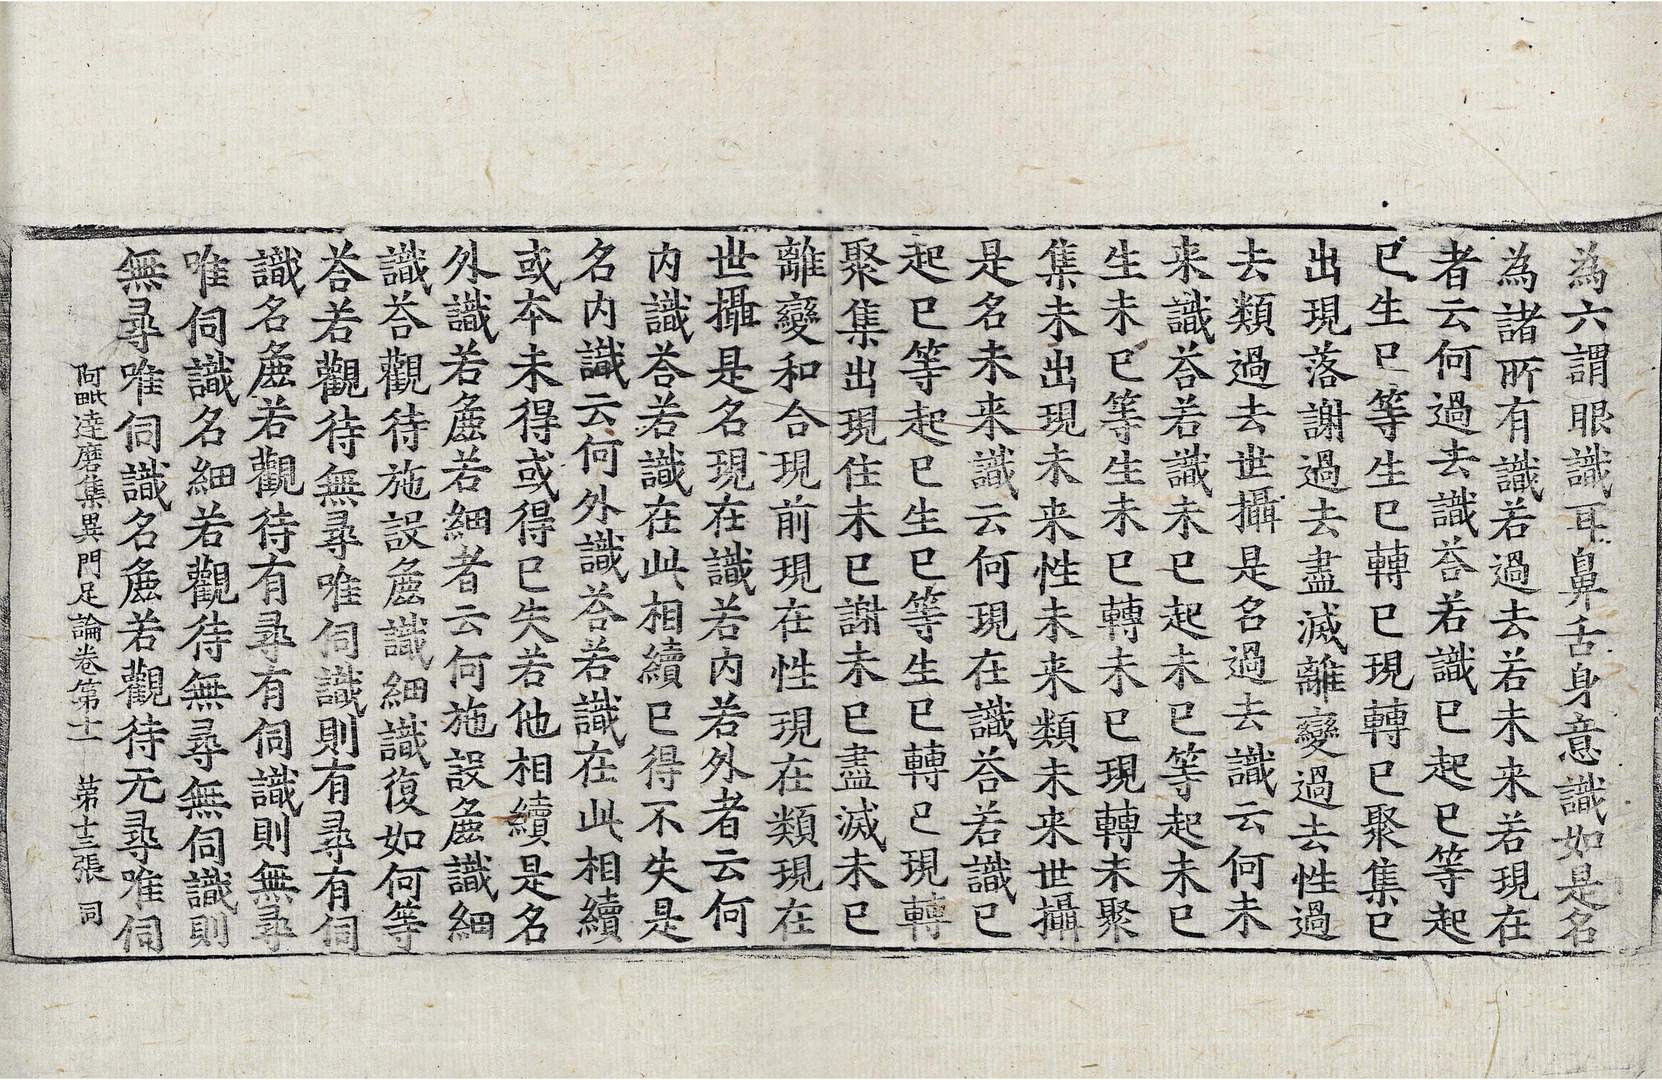 為六謂眼識耳鼻舌身意識如是名
為諸所有識若過去若未来若現在
者云何過去識荅若識已起已等起
已生已等生已轉已現轉已聚集已
出現落謝過去盡滅離變過去性過
去類過去世攝是名過去識云何未
来識荅若識未已起未已等起未已
生未已等生未已轉未已現轉未聚
集未出現未来性未来類未来世攝
是名未来識云何現在識荅若識已
起已等起已生已等生已轉已現轉
聚集出現住未已謝未已盡滅未已
離變和合現前現在性現在類現在
世攝是名現在識若内若外者云何
内識荅若識在此相續已得不失是
名内識云何外識荅若識在此相續
或本未得或得已失若他相續是名
外識若麁若細者云何施設麁識細
識荅觀待施設麁識細識復如何等
荅若觀待無尋唯伺識則有尋有伺
識名麁若觀待有尋有伺識則無尋
唯伺識名細若觀待無尋無伺識則
無尋唯伺識名麁若觀待无尋唯伺
阿毗達磨集異門足論卷第十一 第十三張 詞